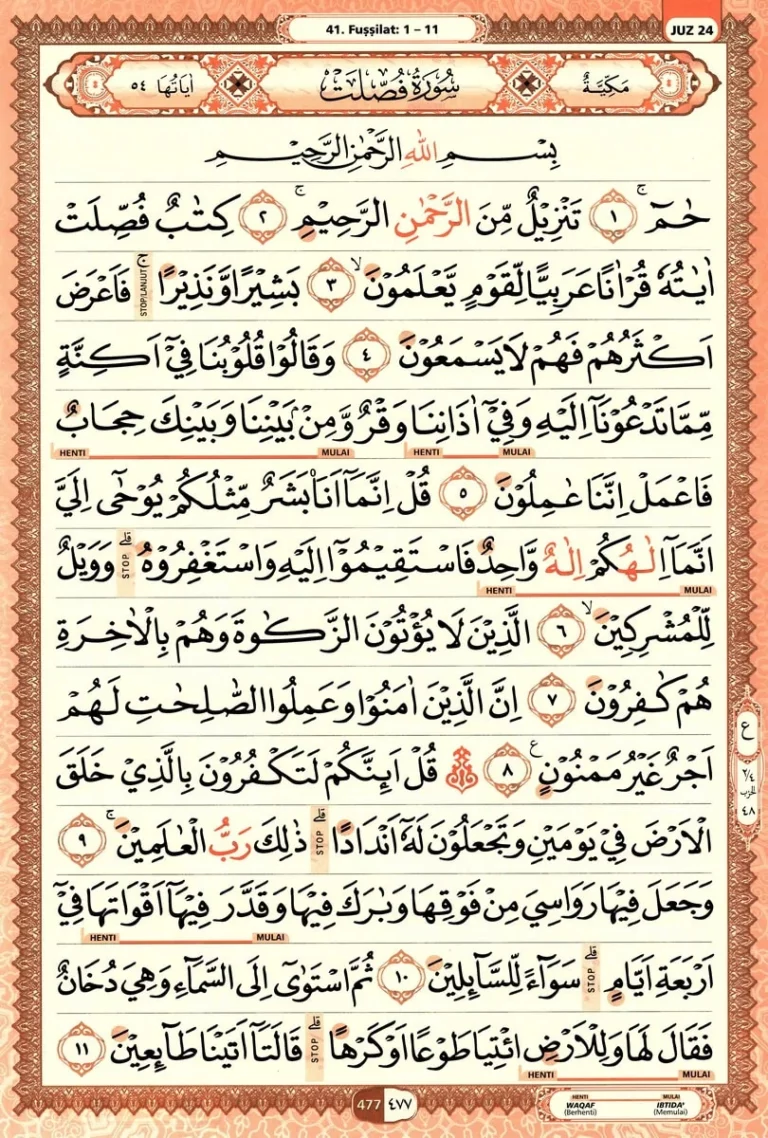 41. Fuṣṣilat: 1 – 11
JUZ 24
مَكِّيَّةٌ
سُوْرَةُ فُصِّلَتْ
اٰيَاتُهَا ٥٤
بِسْمِ اللّٰهِ الرَّحْمٰنِ الرَّحِيْمِ
حٰمۤ ۚ ١ تَنْزِيْلٌ مِّنَ الرَّحْمٰنِ الرَّحِيْمِ ۚ ٢ كِتٰبٌ فُصِّلَتْ
اٰيٰتُهٗ قُرْاٰنًا عَرَبِيًّا لِّقَوْمٍ يَّعْلَمُوْنَ ۙ ٣ بَشِيْرًا وَّنَذِيْرًا ۚ STOP/LANJUT فَاَعْرَضَ
اَكْثَرُهُمْ فَهُمْ لَا يَسْمَعُوْنَ ٤ وَقَالُوْا قُلُوْبُنَا فِيْٓ اَكِنَّةٍ
مِّمَّا تَدْعُوْنَآ اِلَيْهِ وَفِيْٓ اٰذَانِنَا وَقْرٌ وَّمِنْۢ بَيْنِنَا وَبَيْنِكَ حِجَابٌ
HENTI MULAI HENTI MULAI
فَاعْمَلْ اِنَّنَا عٰمِلُوْنَ ٥ قُلْ اِنَّمَآ اَنَا۠ بَشَرٌ مِّثْلُكُمْ يُوْحٰٓى اِلَيَّ
اَنَّمَآ اِلٰهُكُمْ اِلٰهٌ وَّاحِدٌ فَاسْتَقِيْمُوْٓا اِلَيْهِ وَاسْتَغْفِرُوْهُ ۗ STOP وَوَيْلٌ
HENTI MULAI
لِّلْمُشْرِكِيْنَ ۙ ٦ الَّذِيْنَ لَا يُؤْتُوْنَ الزَّكٰوةَ وَهُمْ بِالْاٰخِرَةِ
هُمْ كٰفِرُوْنَ ٧ اِنَّ الَّذِيْنَ اٰمَنُوْا وَعَمِلُوا الصّٰلِحٰتِ لَهُمْ
اَجْرٌ غَيْرُ مَمْنُوْنٍ ࣖ ٨ قُلْ اَىِٕنَّكُمْ لَتَكْفُرُوْنَ بِالَّذِيْ خَلَقَ
ع
٢/٤
الحزب
٤٨
الْاَرْضَ فِيْ يَوْمَيْنِ وَتَجْعَلُوْنَ لَهٗٓ اَنْدَادًا ۗ STOP ذٰلِكَ رَبُّ الْعٰلَمِيْنَ ۚ ٩
وَجَعَلَ فِيْهَا رَوَاسِيَ مِنْ فَوْقِهَا وَبٰرَكَ فِيْهَا وَقَدَّرَ فِيْهَآ اَقْوَاتَهَا فِيْٓ
HENTI MULAI
اَرْبَعَةِ اَيَّامٍ ۗ STOP سَوَاۤءً لِّلسَّاۤىِٕلِيْنَ ١٠ ثُمَّ اسْتَوٰىٓ اِلَى السَّمَاۤءِ وَهِيَ دُخَانٌ
فَقَالَ لَهَا وَلِلْاَرْضِ ائْتِيَا طَوْعًا اَوْ كَرْهًا ۗ STOP قَالَتَآ اَتَيْنَا طَاۤىِٕعِيْنَ ١١
HENTI MULAI
477 ٤٧٧
HENTI MULAI
WAQAF IBTIDA'
(Berhenti) (Memulai)